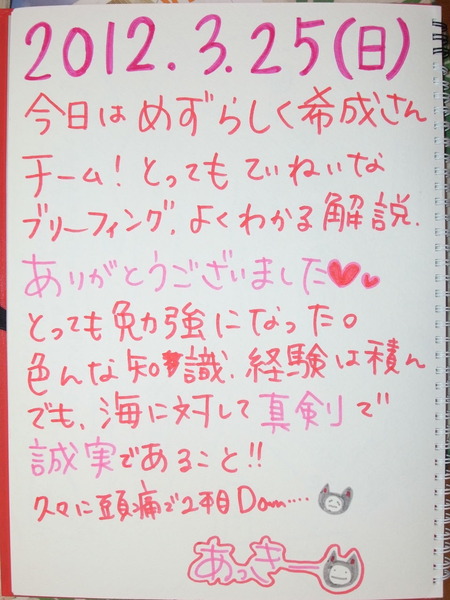 2012.3.25(日)
今日はめずらしく希成さん
チーム!とってもていねいな
ブリーフィング、よくわかる解説、
ありがとうございました♥♥
とっても勉強になった。
色んな知識、経験は積ん
でも、海に対して真剣で
誠実であること!!
久々に頭痛で2本目Dom....
あっき